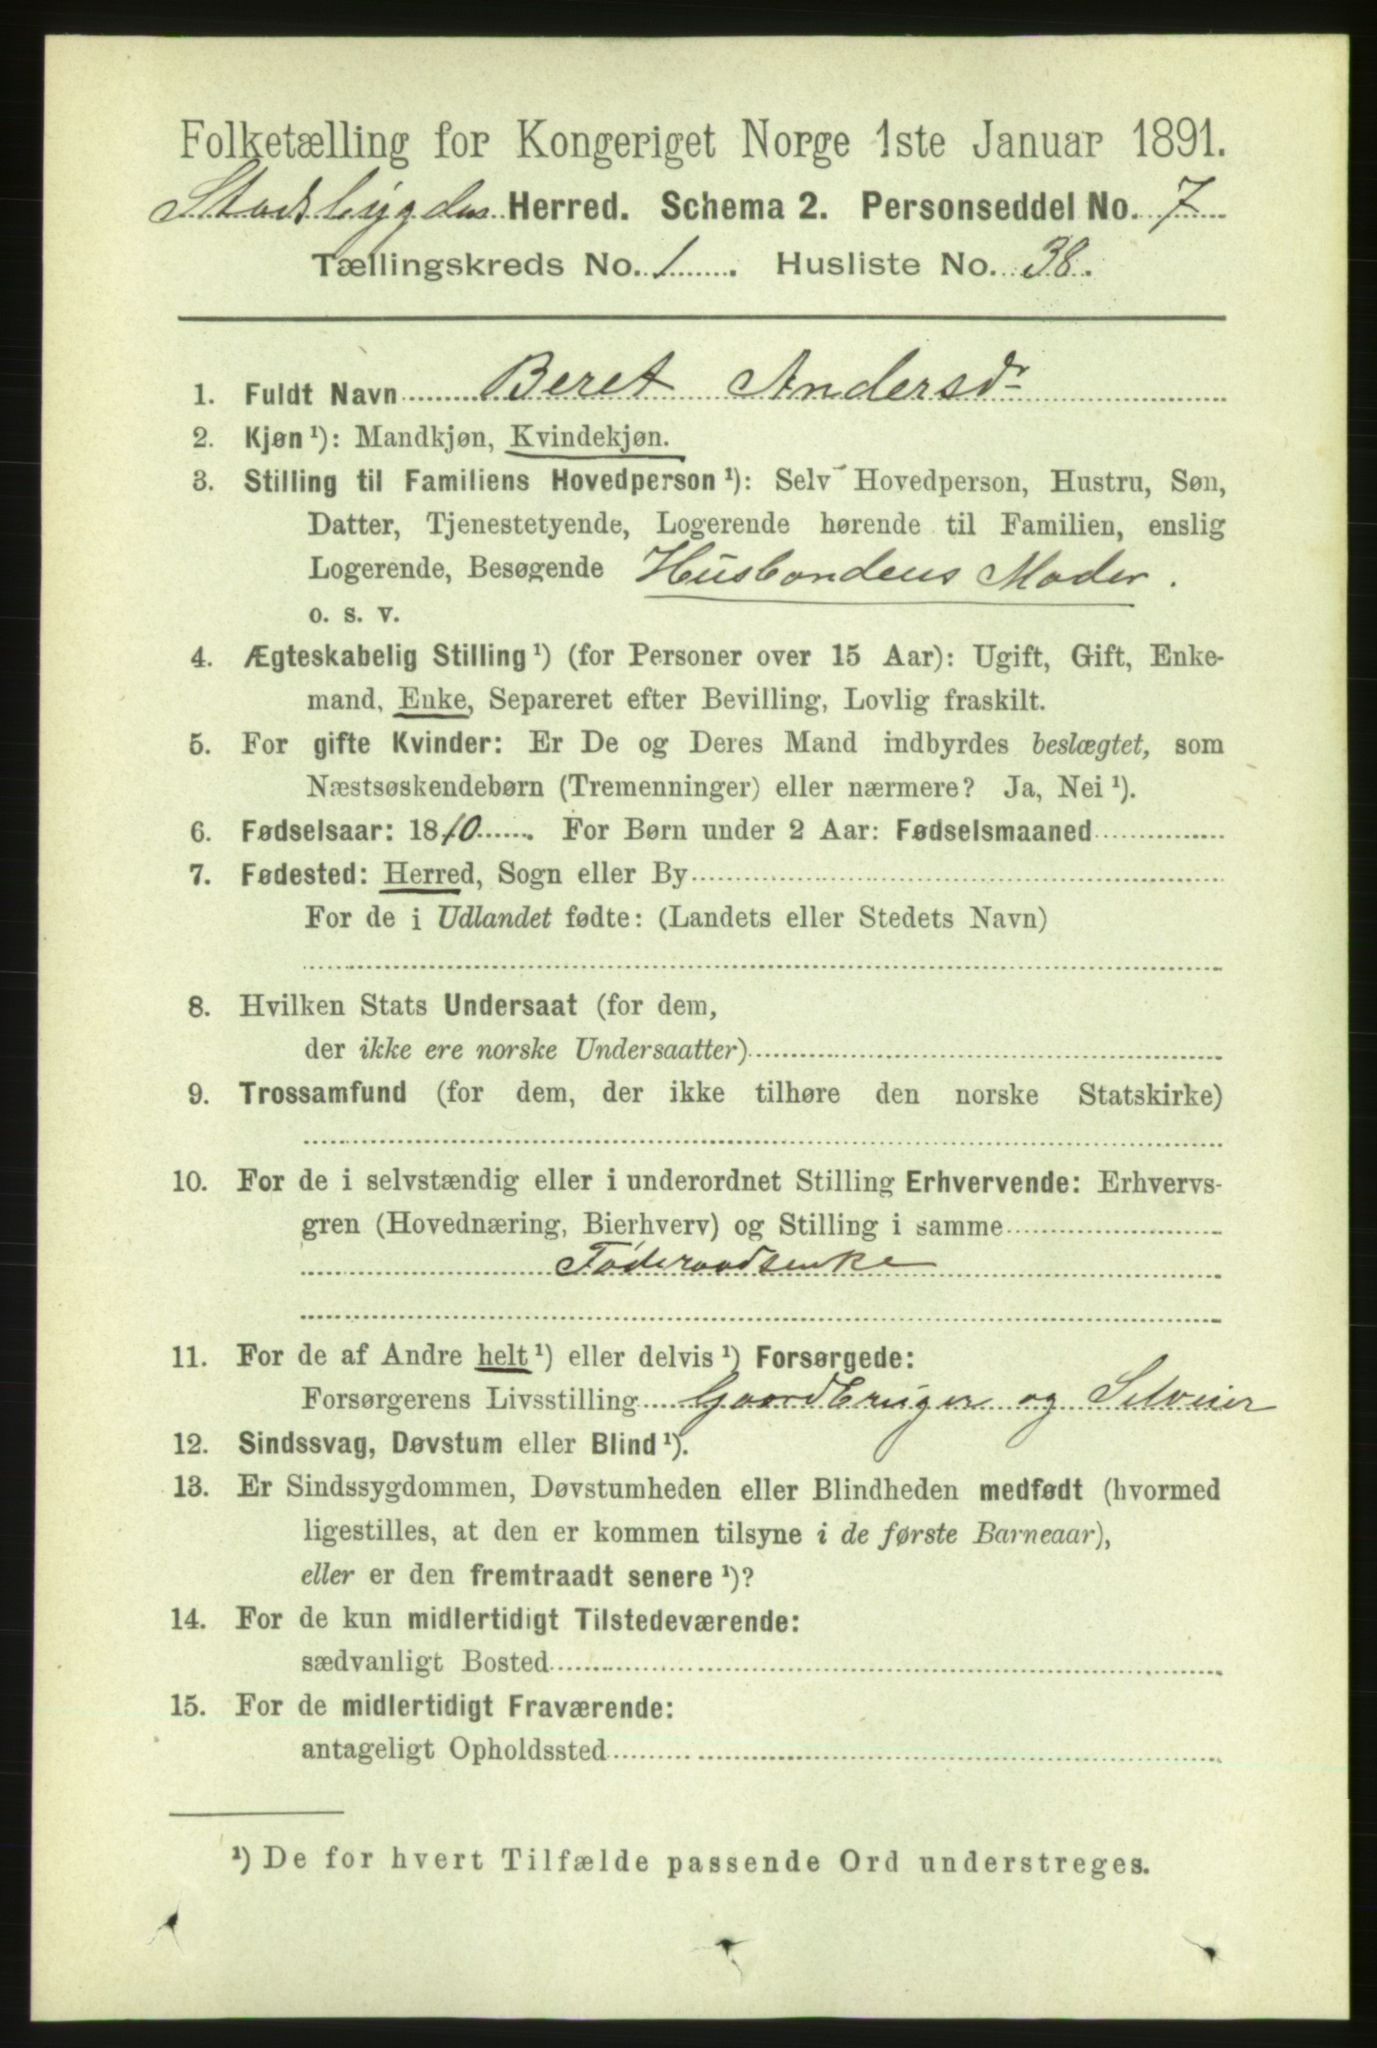 Folketælling for Kongeriget Norge 1ste Januar 1891.
Stadsbygdens Herred. Schema 2. Personseddel No. 7
Tællingskreds No. 1. Husliste No. 38.
1. Fuldt Navn Beret Andersdr
2. Kjøn ¹): Mandkjøn, Kvindekjøn.
3. Stilling til Familiens Hovedperson ¹): Selv Hovedperson, Hustru, Søn,
Datter, Tjenestetyende, Logerende hørende til Familien, enslig
Logerende, Besøgende Husbondens Moder.
o. s. v.
4. Ægteskabelig Stilling ¹) (for Personer over 15 Aar): Ugift, Gift, Enke-
mand, Enke, Separeret efter Bevilling, Lovlig fraskilt.
5. For gifte Kvinder: Er De og Deres Mand indbyrdes beslægtet, som
Næstsøskendebørn (Tremenninger) eller nærmere? Ja, Nei ¹).
6. Fødselsaar: 1810. For Børn under 2 Aar: Fødselsmaaned
7. Fødested: Herred, Sogn eller By
For de i Udlandet fødte: (Landets eller Stedets Navn)
8. Hvilken Stats Undersaat (for dem,
der ikke ere norske Undersaatter)
9. Trossamfund (for dem, der ikke tilhøre den norske Statskirke)
10. For de i selvstændig eller i underordnet Stilling Erhvervende: Erhvervs-
gren (Hovednæring, Bierhverv) og Stilling i samme
Føderaadsenke
11. For de af Andre helt ¹) eller delvis ¹) Forsørgede:
Forsørgerens Livsstilling Gaardbruger og Selveier
12. Sindssvag, Døvstum eller Blind ¹).
13. Er Sindssygdommen, Døvstumheden eller Blindheden medfødt (hvormed
ligestilles, at den er kommen tilsyne i de første Barneaar),
eller er den fremtraadt senere ¹)?
14. For de kun midlertidigt Tilstedeværende:
sædvanligt Bosted
15. For de midlertidigt Fraværende:
antageligt Opholdssted
¹) De for hvert Tilfælde passende Ord understreges.